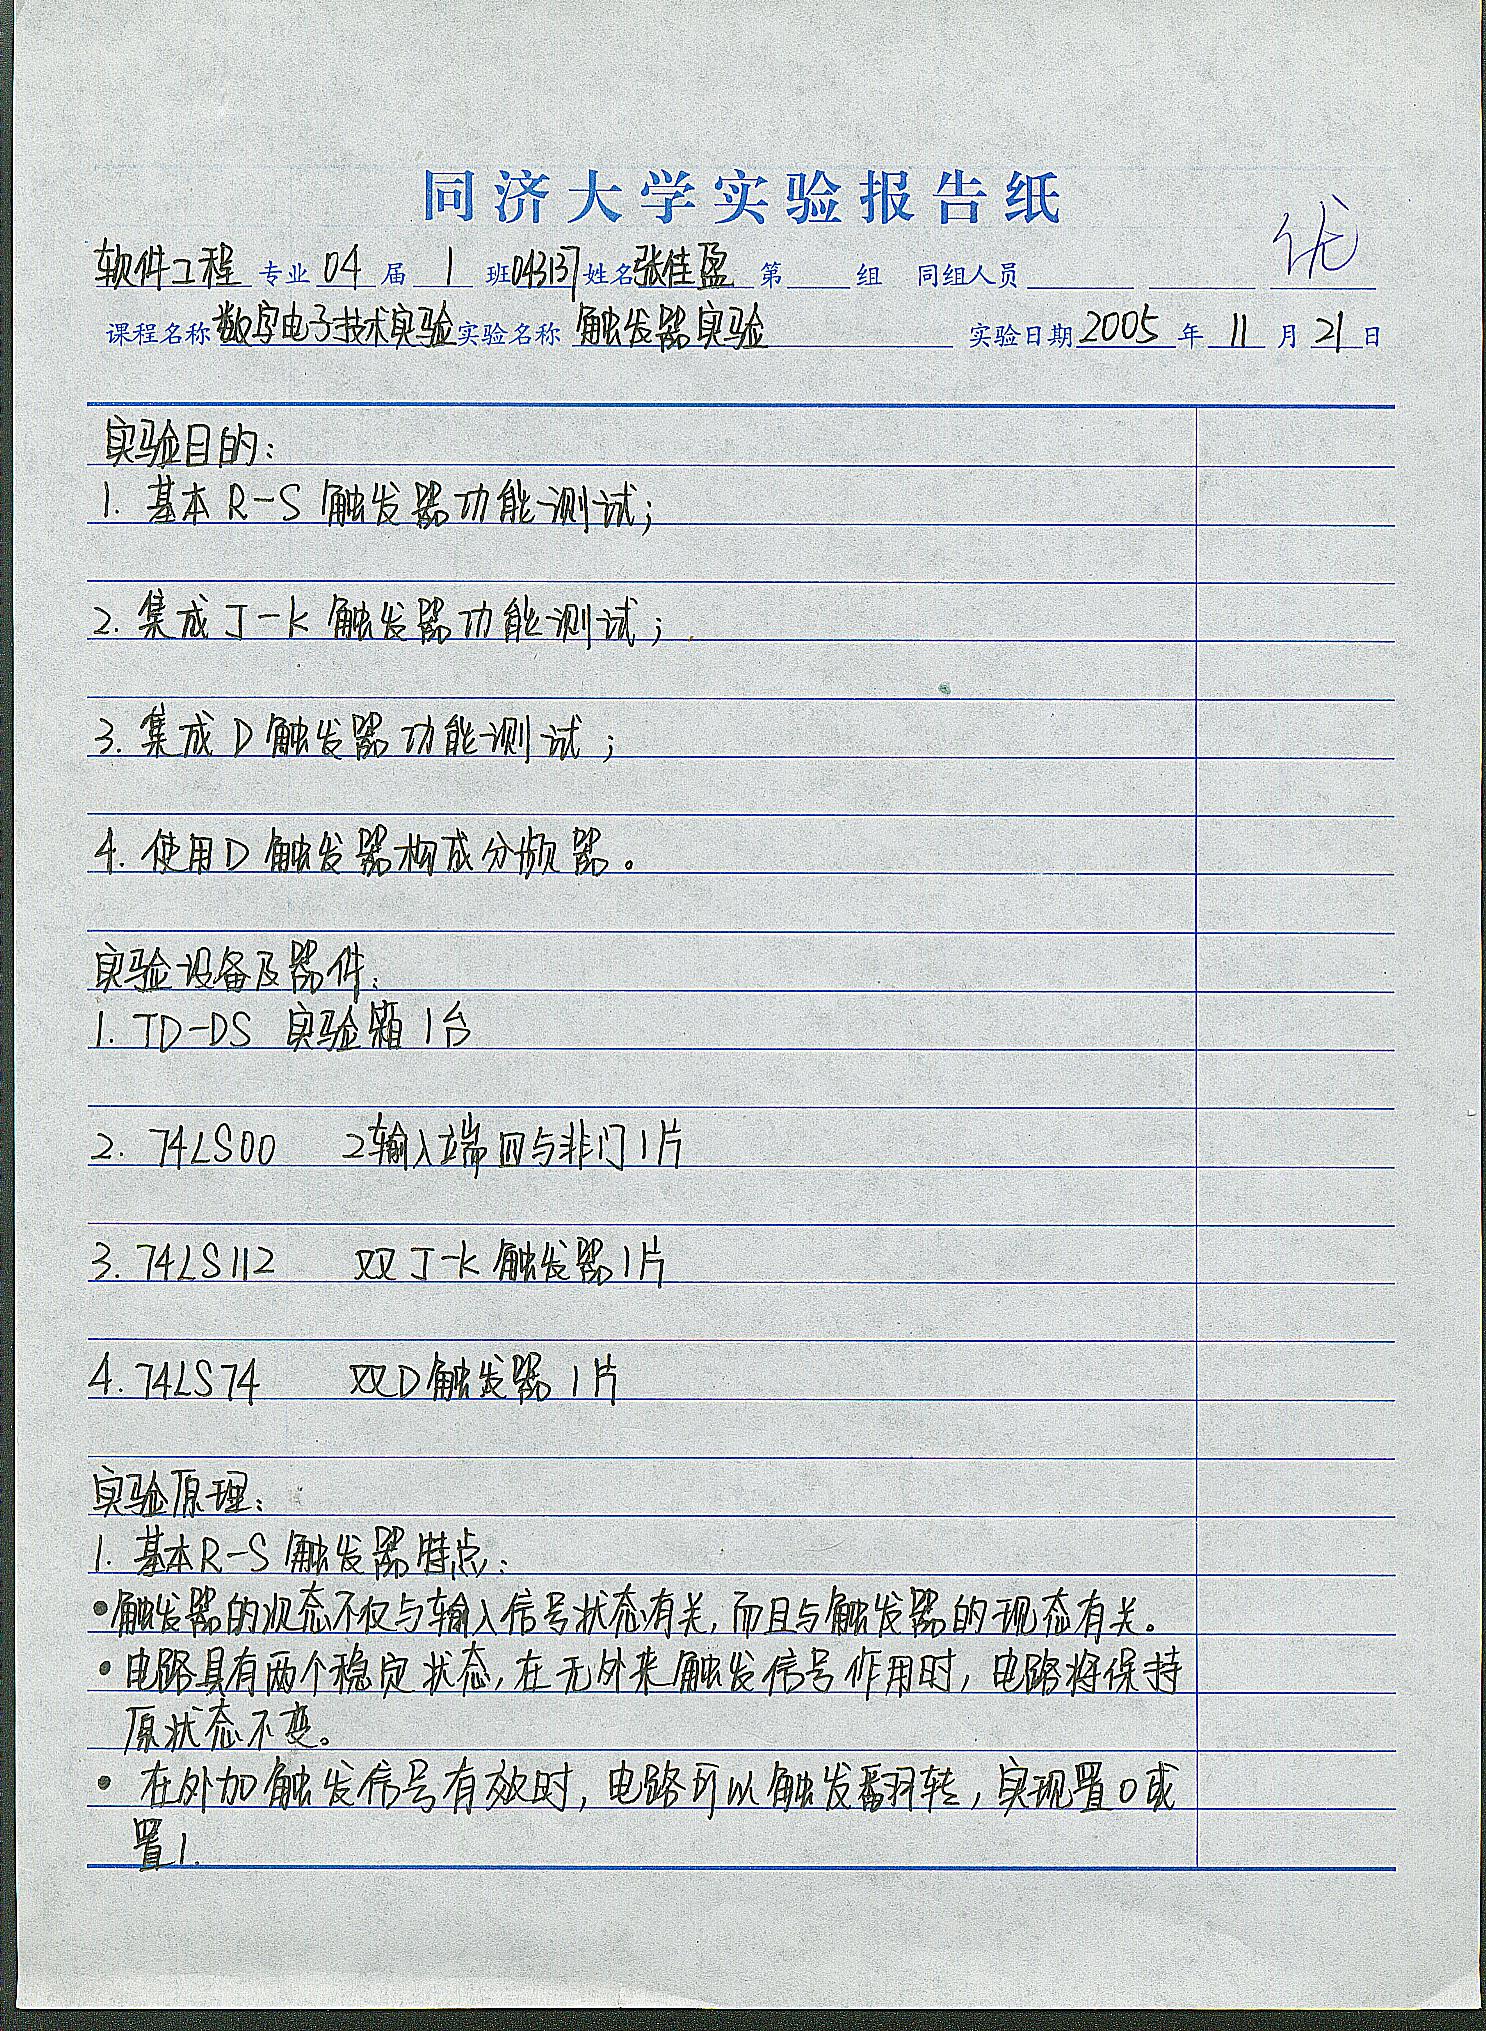 同济大学实验报告纸
优
软件工程 专业 04 届 1 班 043137 姓名 张佳盈 第 组 同组人员
课程名称 数字电子技术实验 实验名称 触发器实验 实验日期 2005 年 11 月 21 日
实验目的:
1. 基本R-S触发器功能测试;
2. 集成J-K触发器功能测试;
3. 集成D触发器功能测试;
4. 使用D触发器构成分频器。
实验设备及器件:
1. TD-DS 实验箱1台
2. 74LS00 2输入端四与非门1片
3. 74LS112 双J-K触发器1片
4. 74LS74 双D触发器1片
实验原理:
1. 基本R-S触发器特点:
•触发器的次态不仅与输入信号状态有关,而且与触发器的现态有关。
•电路具有两个稳定状态,在无外来触发信号作用时,电路将保持
原状态不变。
•在外加触发信号有效时,电路可以触发翻转,实现置0或
置1.